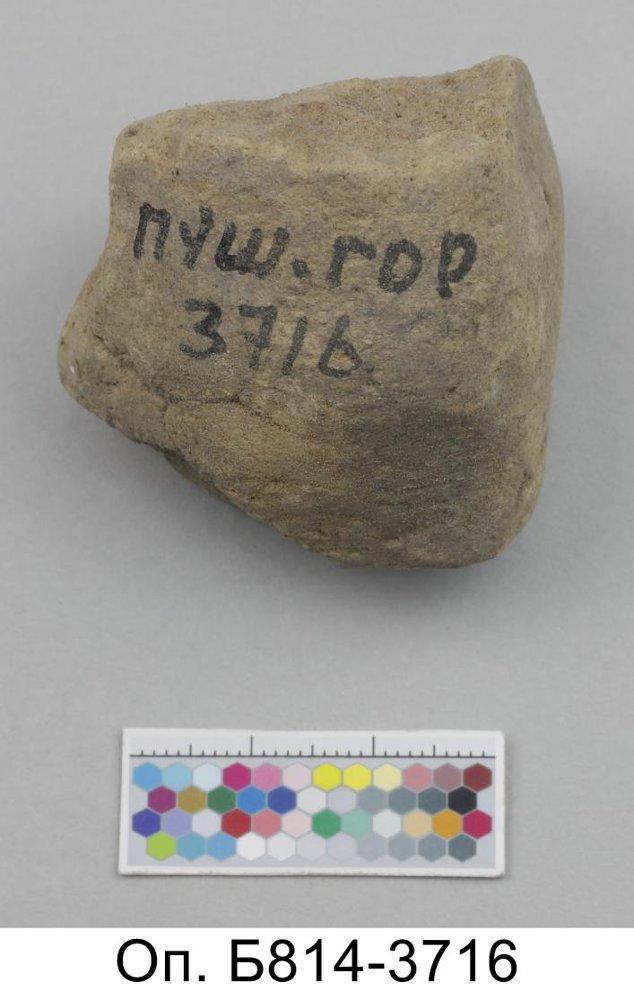 ПУШ. ГОР
3716
Оп. Б814-3716